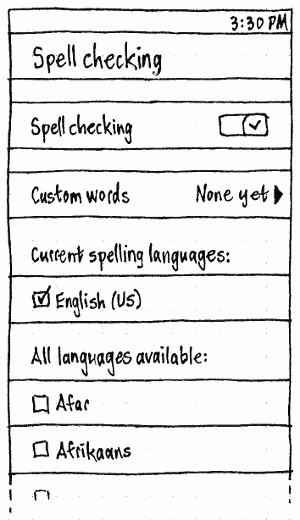 3:30 PM
Spell checking
Spell checking
Custom words None yet
Current spelling languages:
English (US)
All languages available:
Afar
Afrikaans